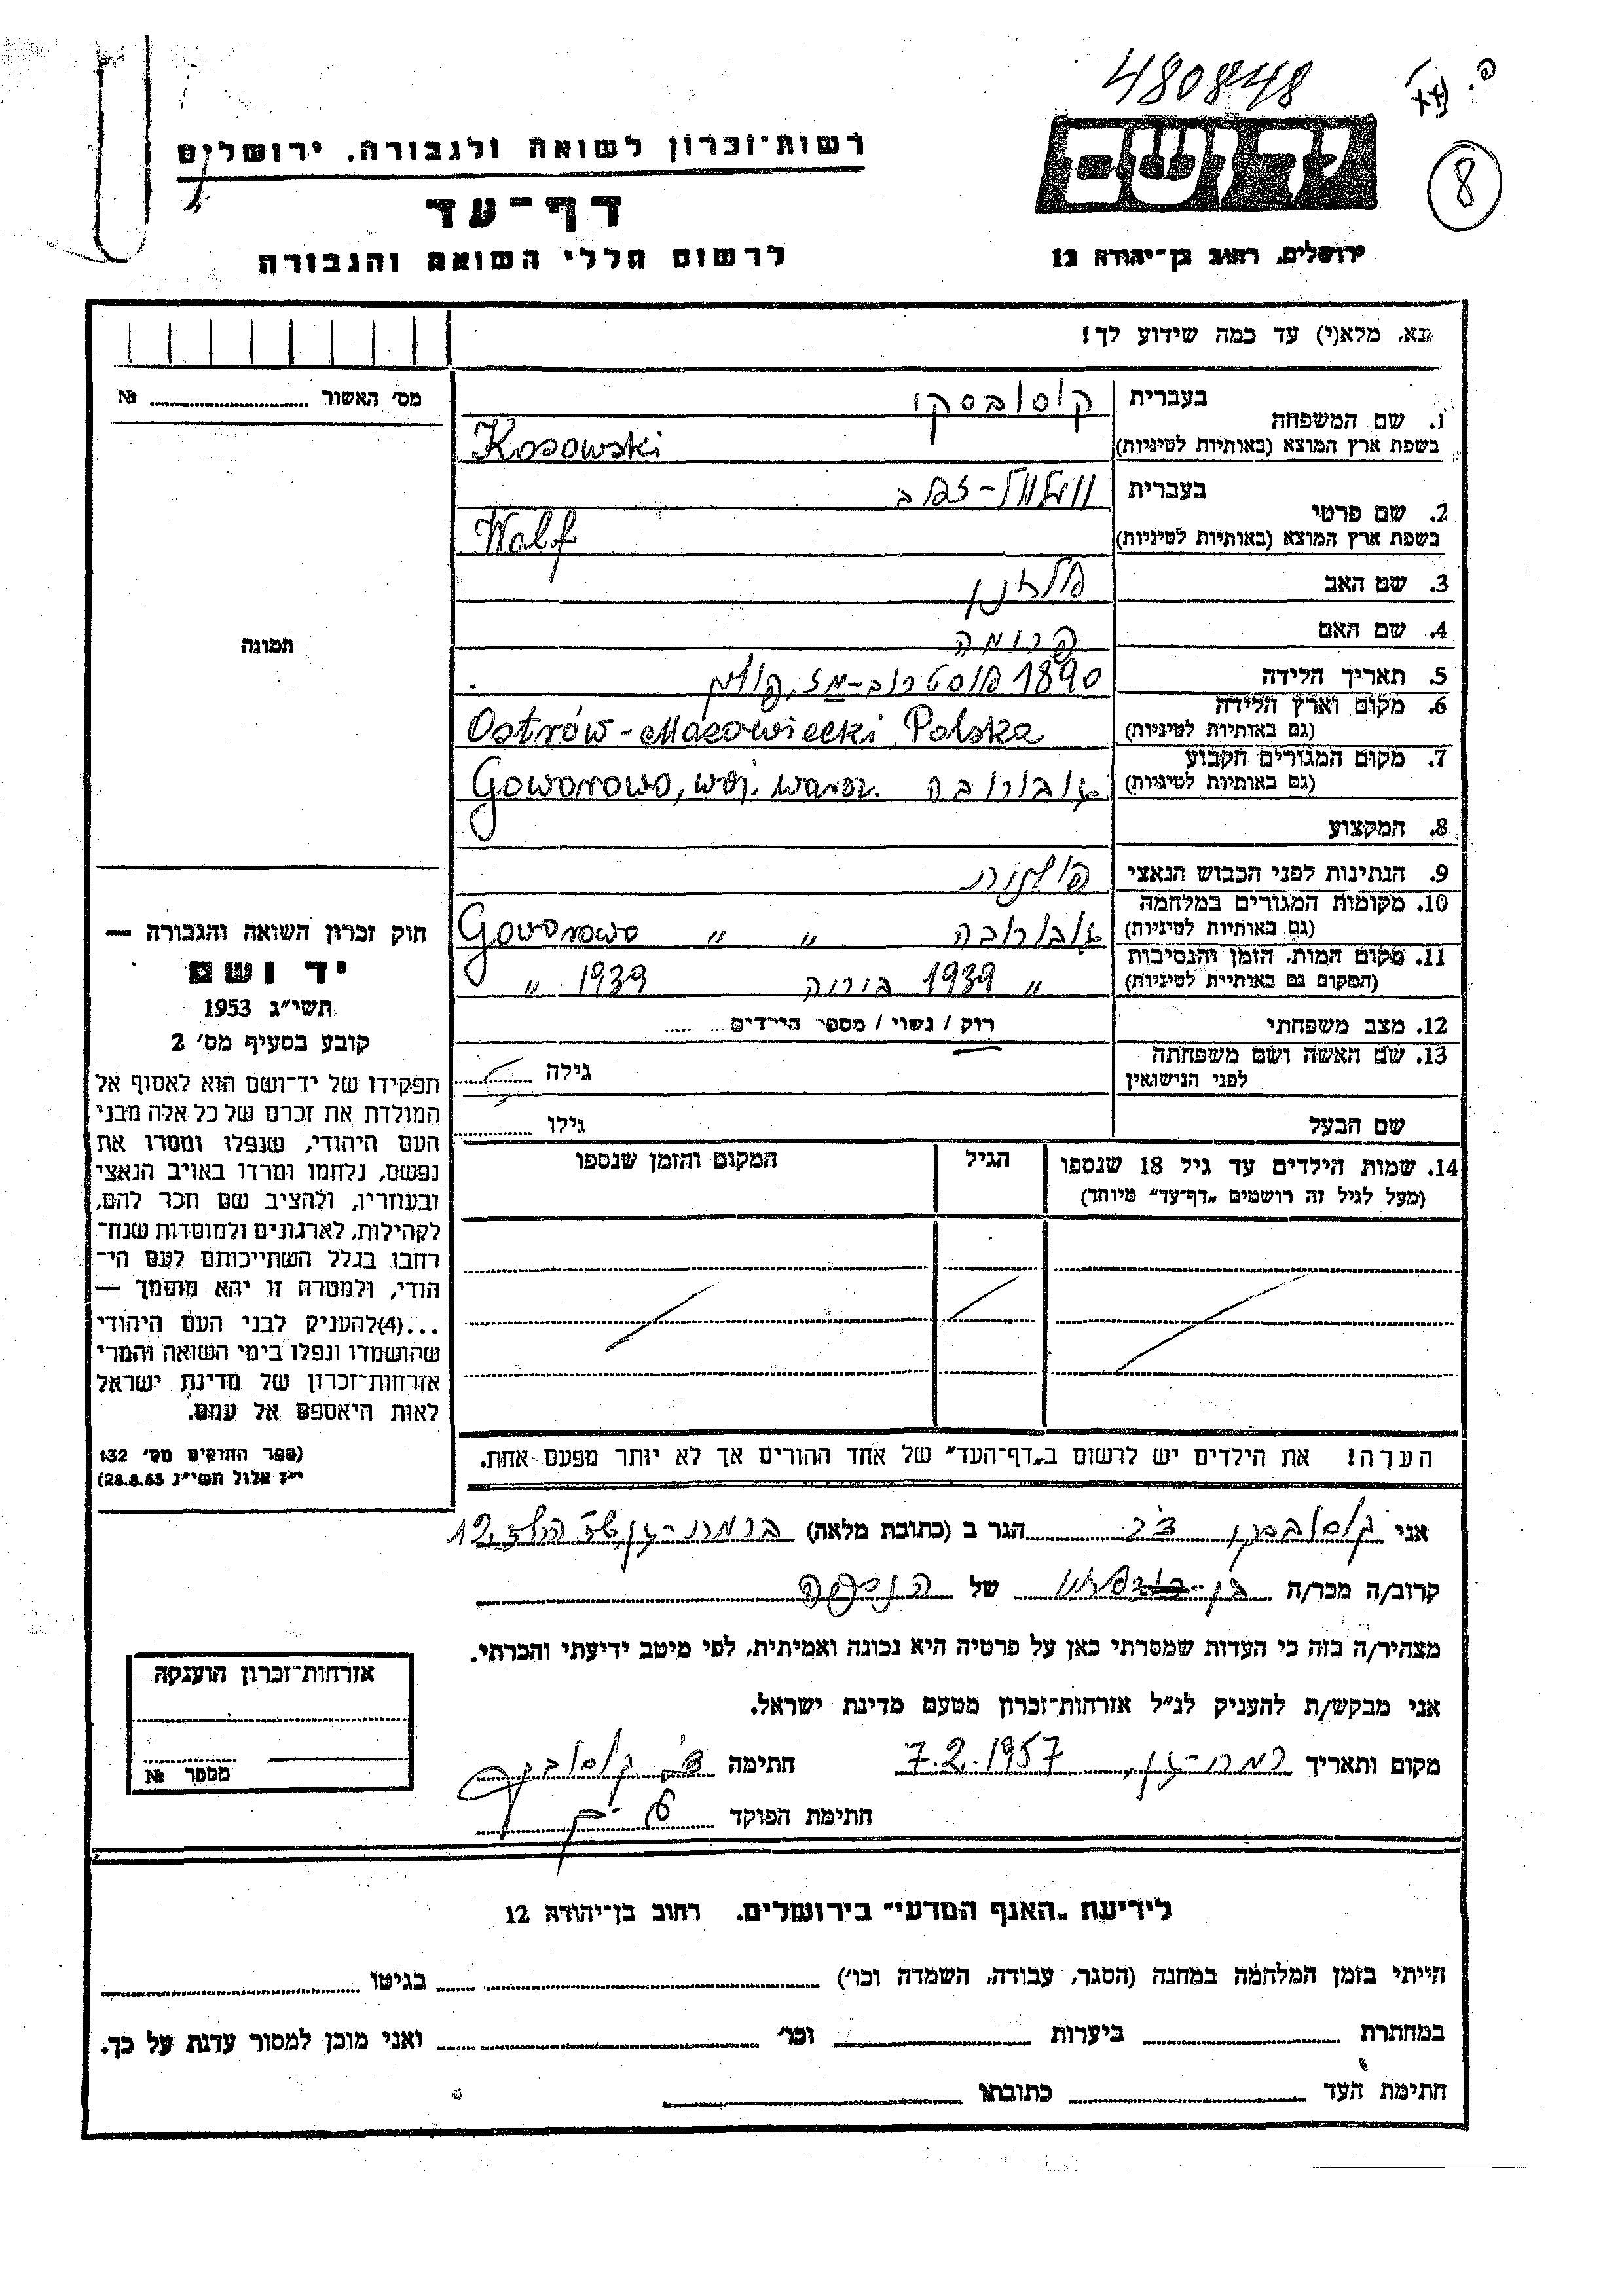 480848
8
יד ושם
ירושלים, רחוב בן־יהודה 12
רשות־זכרון לשואה ולגבורה, ירושלים
דף־עד
לרשום חללי השואה והגבורה
נא, מלא(י) עד כמה שידוע לך!
מס׳ האשור № 
תמונה
1. שם המשפחה בעברית קוסובסקי
בשפת ארץ המוצא (באותיות לטיניות) Kosowski
2. שם פרטי בעברית וועלוול-זאב
בשפת ארץ המוצא (באותיות לטיניות) Wolf
3. שם האב
4. שם האם פרומה
5. תאריך הלידה 1890 אוסטרוב-מז. פולין
6. מקום וארץ הלידה (גם באותיות לטיניות) Ostrów-Mazowiecki Polska
7. מקום המגורים הקבוע (גם באותיות לטיניות) גוברובה Goworowo, woj. warsz.
8. המקצוע
9. הנתינות לפני הכבוש הנאצי פולנית
10. מקומות המגורים במלחמה (גם באותיות לטיניות) גוברובה " " Goworowo
11. מקום המות, הזמן והנסיבות (המקום גם באותיות לטיניות) " 1939 1939 "
12. מצב משפחתי רוק / נשוי / מספר הילדים
13. שם האשה ושם משפחתה לפני הנישואין גילה
שם הבעל גילו
14. שמות הילדים עד גיל 18 שנספו (מעל לגיל זה רושמים „דף־עד" מיוחד) הגיל המקום והזמן שנספו
הערה! את הילדים יש לרשום ב„דף־העד" של אחד ההורים אך לא יותר מפעם אחת.
חוק זכרון השואה והגבורה —
יד ושם
תשי״ג 1953
קובע בסעיף מס׳ 2
תפקידו של יד־ושם הוא לאסוף אל
המולדת את זכרם של כל אלה מבני
העם היהודי, שנפלו ומסרו את
נפשם, נלחמו ומרדו באויב הנאצי
ובעוזריו, ולהציב שם וזכר להם,
לקהילות, לארגונים ולמוסדות שנח־
רבו בגלל השתייכותם לעם הי־
הודי, ולמטרה זו יהא מוסמך —
...(4)להעניק לבני העם היהודי
שהושמדו ונפלו בימי השואה והמרי
אזרחות־זכרון של מדינת ישראל
לאות היאספם אל עמם.
(ספר החוקים מס׳ 132
י״ז אלול תשי״ג 28.8.53)
אני קוסובסקי צבי הגר ב (כתובת מלאה) ברמת-גן 12
קרוב/ה מכר/ה בן- של הנספה
מצהיר/ה בזה כי העדות שמסרתי כאן על פרטיה היא נכונה ואמיתית, לפי מיטב ידיעתי והכרתי.
אני מבקש/ת להעניק לנ״ל אזרחות־זכרון מטעם מדינת ישראל.
מקום ותאריך רמת-גן, 7.2.1957 חתימה צ. קוסובסקי
חתימת הפוקד
אזרחות־זכרון הוענקה
מספר №
לידיעת „האגף המדעי" בירושלים, רחוב בן־יהודה 12
הייתי בזמן המלחמה במחנה (הסגר, עבודה, השמדה וכו׳) בגיטו
במחתרת ביערות וכו׳ ואני מוכן למסור עדות על כך.
חתימת העד כתובתו